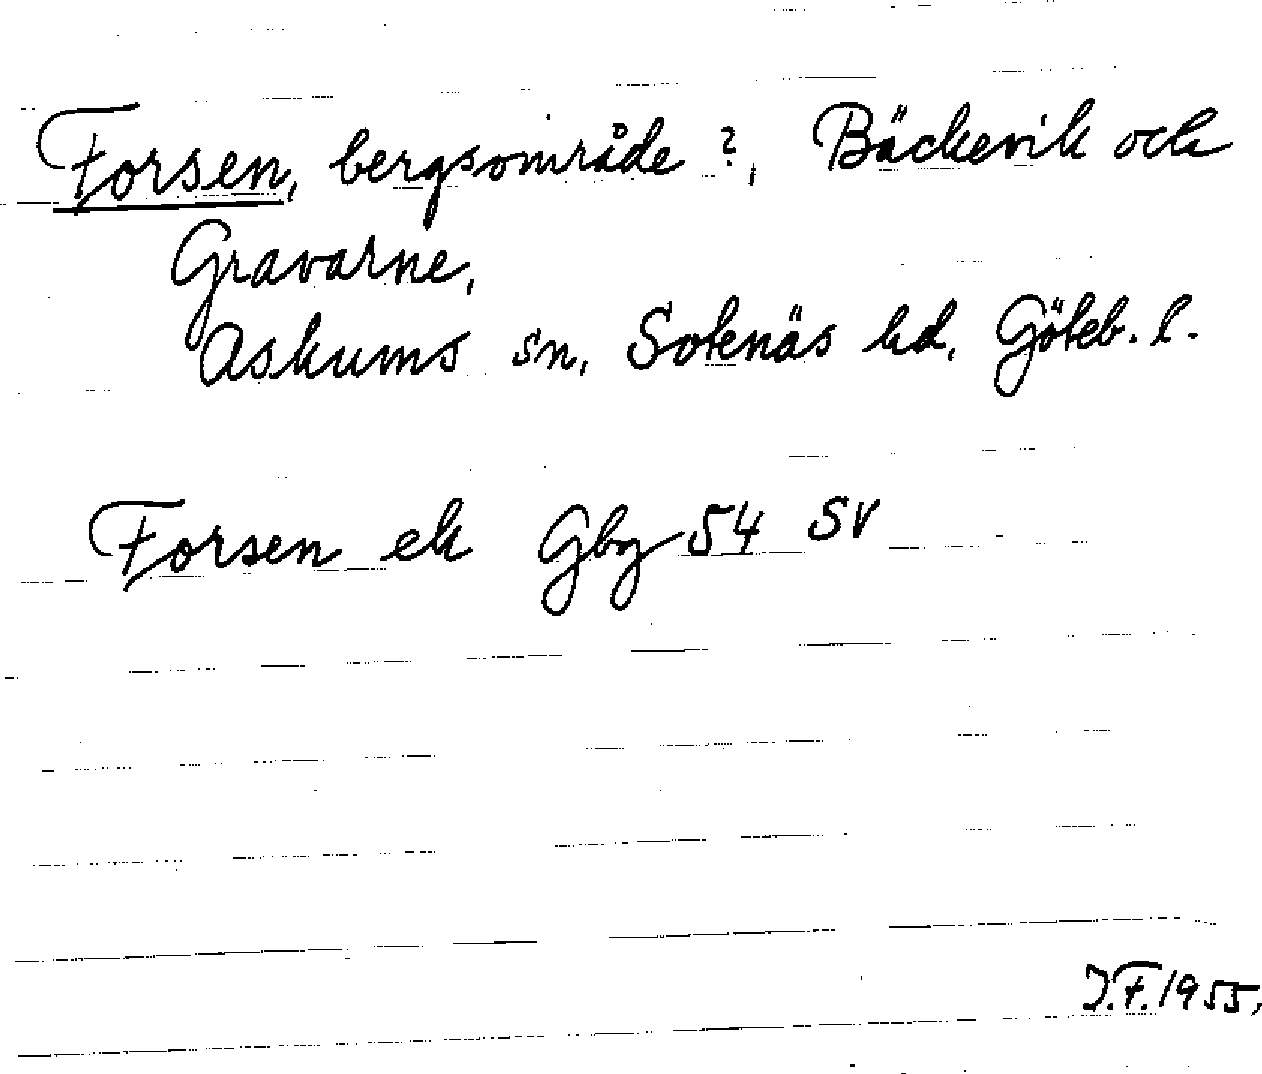 Forsen, bergsområde ?, Bäckevik och
Gravarne,
Askums sn, Sotenäs hd, Göteb. l.
Forsen ek Gbg 54 SV
J.F. 1955,